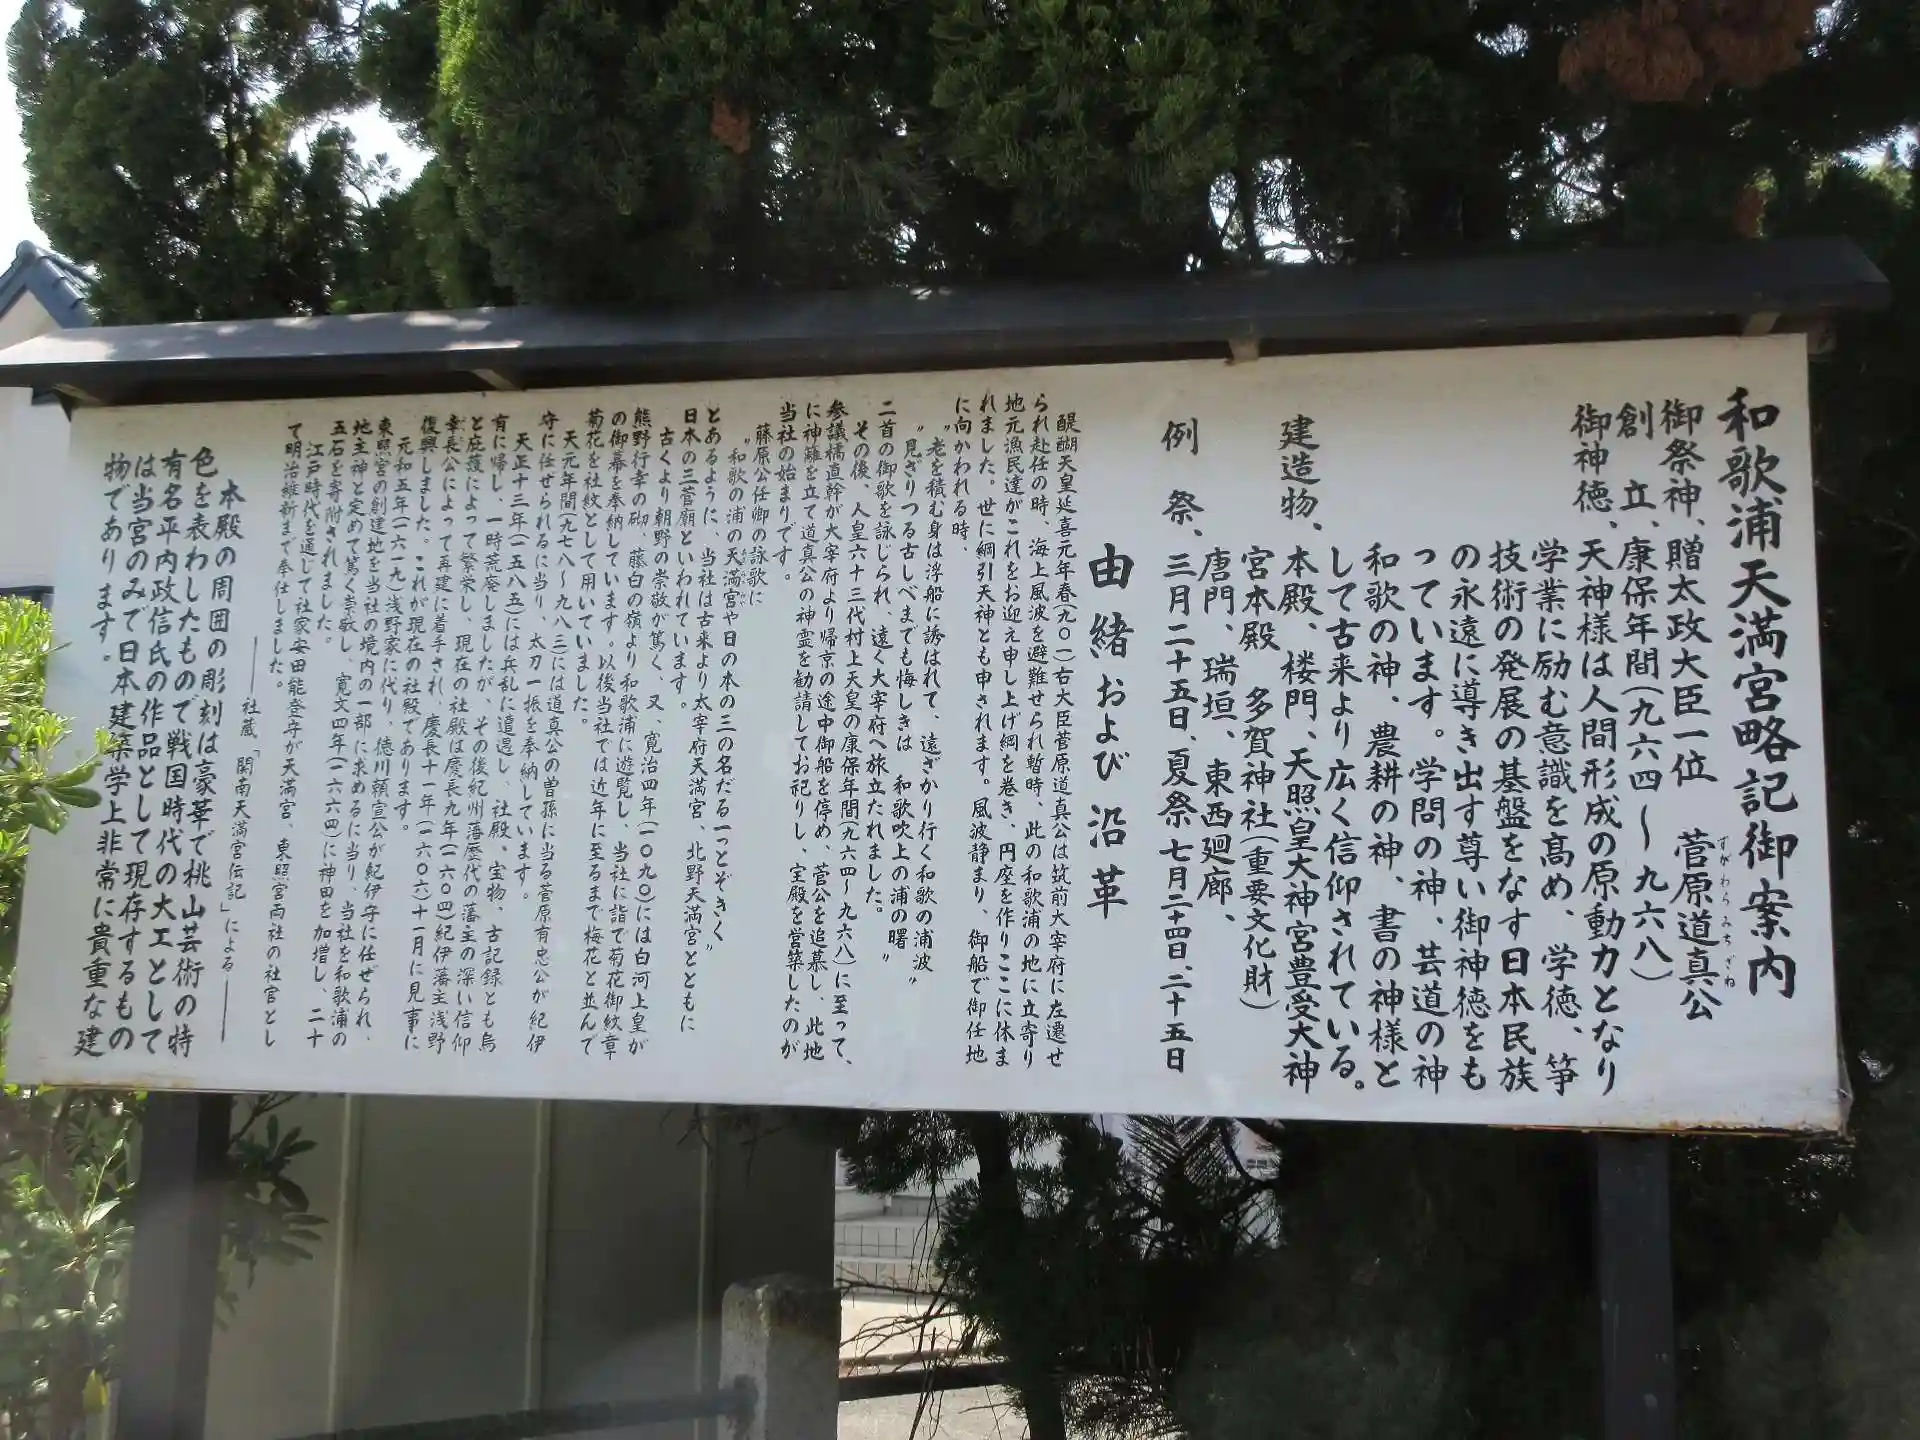 和歌浦天満宮略記御案内
御祭神、贈太政大臣一位　菅原道真公
すがわらみちざね
創　立、康保年間(九六四～九六八)
御神徳、天神様は人間形成の原動力となり
学業に励む意識を高め、学徳、筆
技術の発展の基盤をなす日本民族
の永遠に導き出す尊い御神徳をも
っています。学問の神、芸道の神
和歌の神、農耕の神、書の神様と
して古来より広く信仰されている。
建造物、本殿、楼門、天照皇大神宮豊受大神
宮本殿　多賀神社(重要文化財)
唐門、瑞垣、東西廻廊、
例　祭、三月二十五日、夏祭七月二十四日、二十五日
由緒および沿革
醍醐天皇延喜元年春(九〇一)右大臣菅原道真公は筑前大宰府に左遷せ
られ赴任の時、海上風波を避難せられ暫時、此の和歌浦の地に立寄り
地元漁民達がこれをお迎え申し上げ綱を巻き、円座を作りここに休ま
れました。世に綱引天神とも申されます。風波静まり、御船で御任地
に向かわれる時、
〝老を積む身は浮船に誘はれて、遠ざかり行く和歌の浦波〟
〝見ざりつる古しべまでも悔しきは　和歌吹上の浦の曙〟
二首の御歌を詠じられ、遠く大宰府へ旅立たれました。
その後、人皇六十三代村上天皇の康保年間(九六四～九六八)に至って、
参議橘直幹が大宰府より帰京の途中御船を停め、菅公を追慕し、此地
に神籬を立て道真公の神霊を勧請してお祀りし、宝殿を営築したのが
当社の始まりです。
藤原公任卿の詠歌に
〝和歌の浦の天満宮や日の本の三の名だる一つとぞきく〟
とあるように、当社は古来より太宰府天満宮、北野天満宮とともに
日本の三菅廟といわれています。
古くより朝野の崇敬が篤く、又、寛治四年(一〇九〇)には白河上皇が
熊野行幸の砌　藤白の嶺より和歌浦に遊覧し、当社に詣で菊花御紋章
の御幕を奉納しています。以後当社では近年に至るまで梅花と並んで
菊花を社紋として用いていました。
天元年間(九七八～九八三)には道真公の曽孫に当る菅原有忠公が紀伊
守に任ぜられるに当り、太刀一振を奉納しています。
天正十三年(一五八五)には兵乱に遭遇し、社殿、宝物、古記録とも烏
有に帰し、一時荒廃しましたが、その後紀州藩歴代の藩主の深い信仰
と庇護によって繁栄し、現在の社殿は慶長九年(一六〇四)紀伊藩主浅野
幸長公によって再建に着手され、慶長十一年(一六〇六)十一月に見事に
復興しました。これが現在の社殿であります。
元和五年(一六一九)浅野家に代り、徳川頼宣公が紀伊守に任ぜられ、
東照宮の創建地を当社の境内の一部に求めるに当り、当社を和歌浦の
地主神と定めて篤く崇敬し、寛文四年(一六六四)に神田を加増し、二十
五石を寄附されました。
江戸時代を通じて社家安田能登守が天満宮、東照宮両社の社官とし
て明治維新まで奉仕しました。
――社蔵「関南天満宮伝記」による――
本殿の周囲の彫刻は豪華で桃山芸術の特
色を表わしたもので戦国時代の大工として
有名平内政信氏の作品として現存するもの
は当宮のみで日本建築学上非常に貴重な建
物であります。